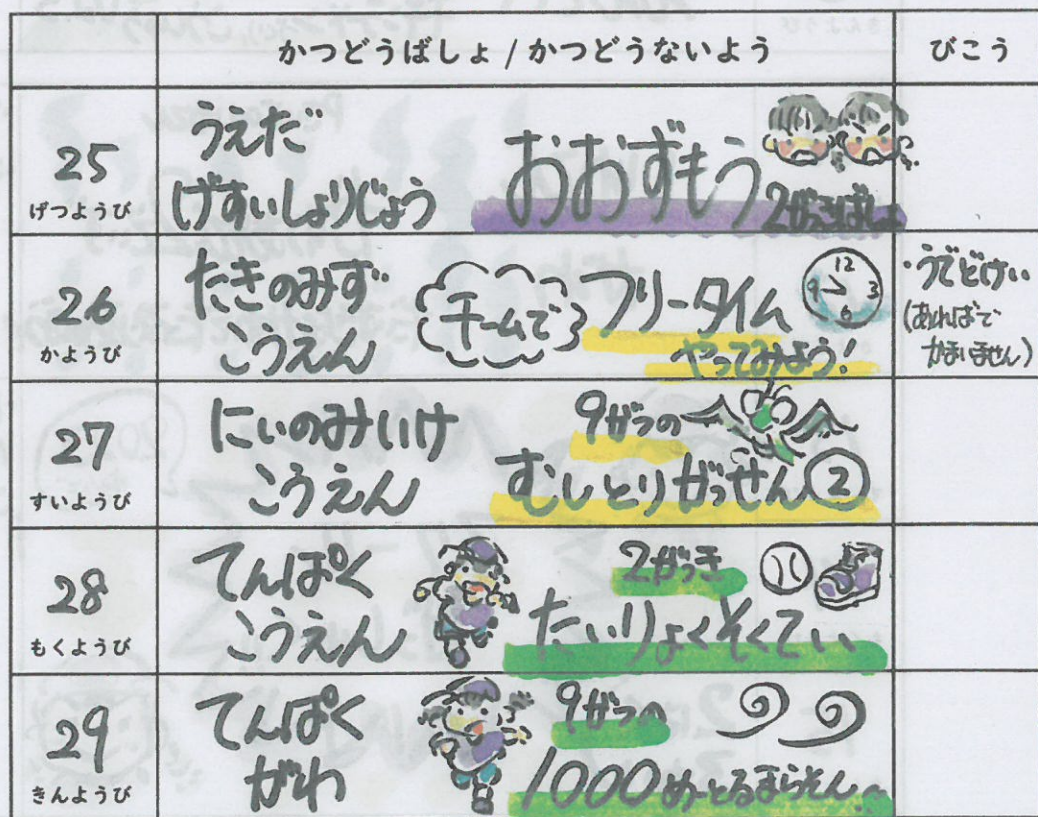 かつどうばしょ / かつどうないよう
びこう
25
げつようび
うえだ
げすいしょりじょう
おおずもう
2がっきばしょ
26
かようび
たきのみず
こうえん
チームで
フリータイム
やってみよう!
12
9 3
6
・うでどけい
(あればで
かまいません)
27
すいようび
にいのみいけ
こうえん
9がつの
むしとりがっせん②
28
もくようび
てんぱく
こうえん
2がっき
たいりょくそくてい
29
きんようび
てんぱく
がわ
9がつの
1000めーとるまらそん